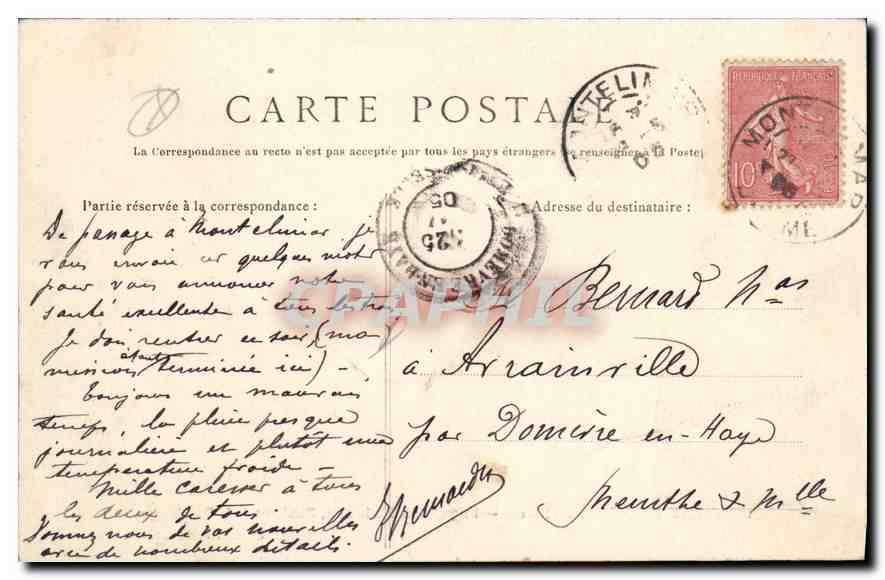 CARTE POSTALE
La Correspondance au recto n'est pas acceptée par tous les pays étrangers se renseigner à la Poste
Partie réservée à la correspondance :
De passage à Montelimar je
vous envoie ces quelques mots
pour vous annoncer notre
santé excellente à tous les trois
Je dois rentrer ce soir, (ma
mission étant terminée ici) -
Toujours un mauvais
temps, la pluie presque
journalière et plutôt une
température froide -
Mille caresses à tous
les deux de tous
Donnez nous de vos nouvelles
avec de nombreux détails
Adresse du destinataire :
Bernard Nas
à Arrainville
par Domèvre en-Haye
Meurthe & Mlle
REPUBLIQUE FRANÇAISE
10
MON
05
25
DOMEVRE-EN-HAYE
CPAPHIL